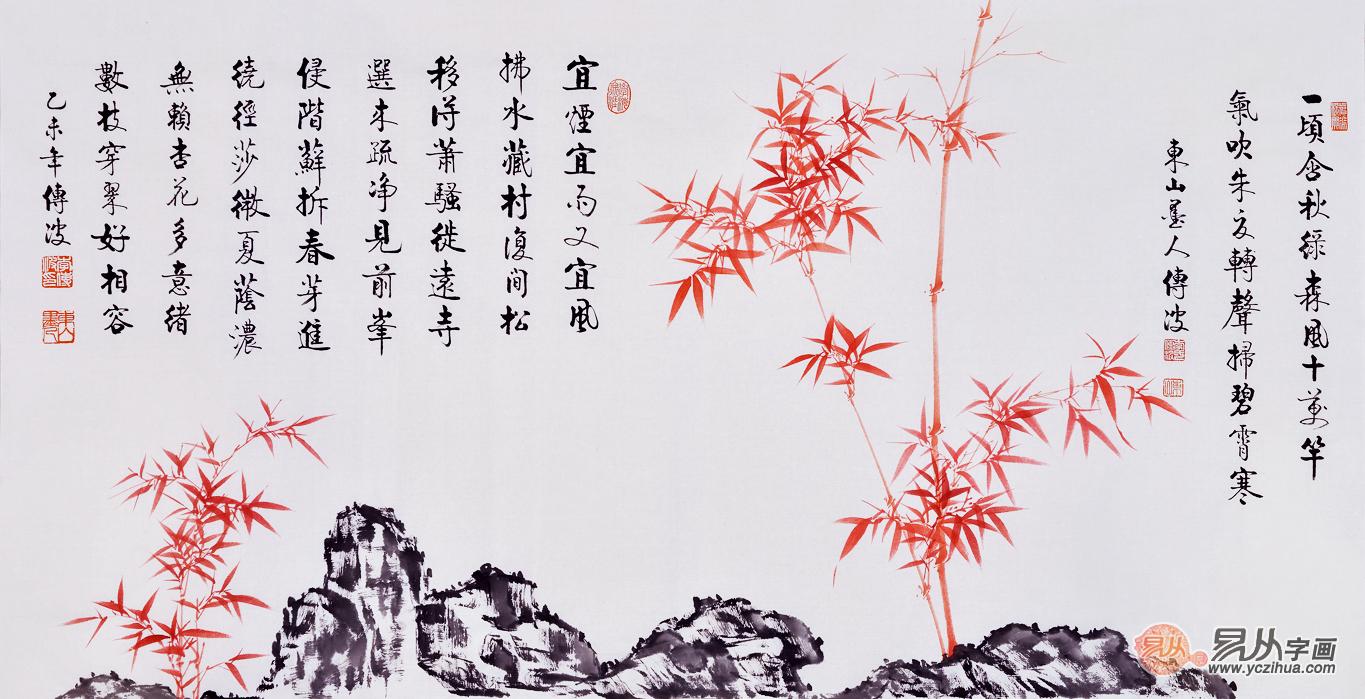 一頃含秋綠森風十萬竿
氣吹朱夏轉聲掃碧霄寒
東山墨人傳波
宜煙宜雨又宜風
拂水藏村復間松
移得蕭騷從遠寺
選來疏净見前峯
侵階蘚拆春芽進
繞徑莎微夏蔭濃
無賴杏花多意緒
數枝穿翠好相容
乙未年傳波
易从字画
www.yczihua.com